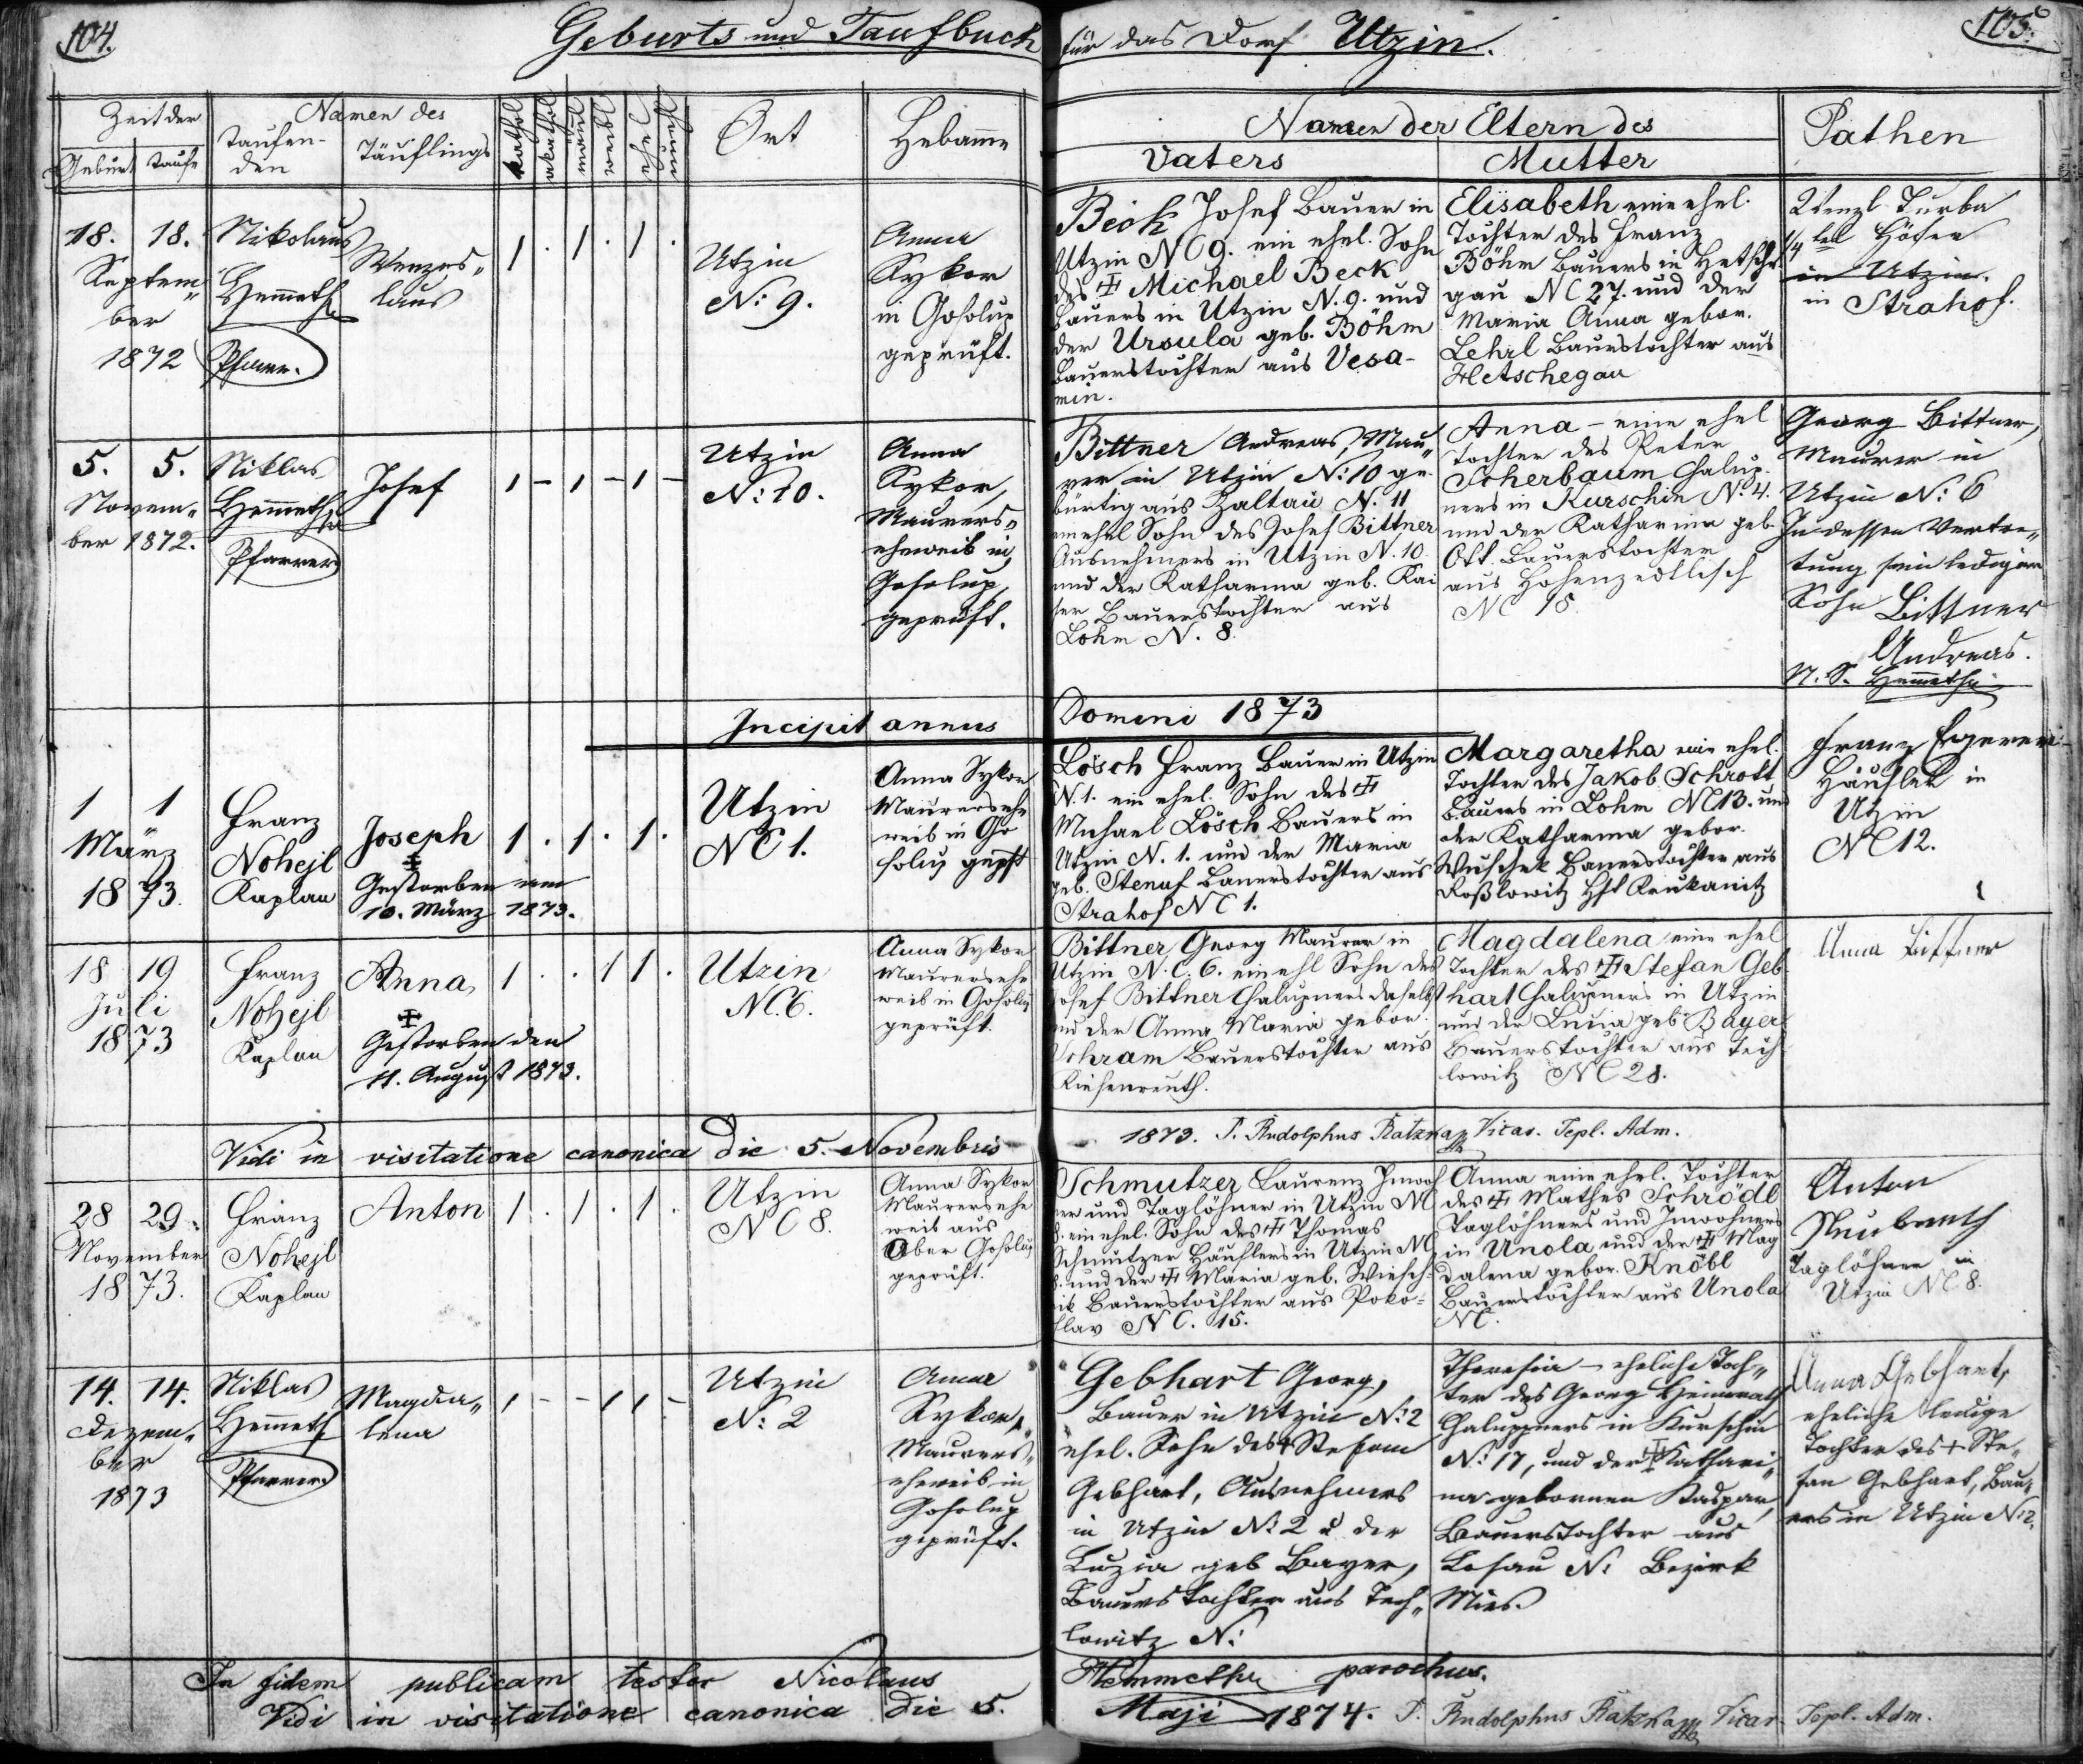 104.
Geburts und Taufbuch für das Dorf Utzin.
105.
Zeit der
Geburt Taufe
Namen des
Taufen-
den
Täuflings
kathol
akathol
mänl
weibl
ehel
unehl
Ort
Hebame
Namen der Eltern des
Vaters
Mutter
Pathen
18. 18.
Septem„
ber
1872
Nikolaus
Hemmeth
Pfarrer.
Wenzes„
laus
1 . 1 . 1 .
Utzin
N: 9.
Anna
Sykor
in Gosolup
geprüft.
Beck Josef Bauer in
Utzin NC 9. ein ehel. Sohn
des ✝ Michael Beck
Bauers in Utzin N. 9. und
der Ursula geb. Böhm
Bauerstochter aus Vesa-
min.
Elisabeth eine ehel.
Tochter des Franz
Böhm Bauers in Hetsch
gau NC 27. und der
Maria Anna gebor.
Lehrl Bauerstochter aus
Hetschegau
Wenzl Turba
1/4 tel Höfer
in Utzin.
in Strahof.
5. 5.
Novem„
ber 1872.
Niklas
Hemmeth
Pfarrer
Josef
1 – 1 – 1 –
Utzin
N: 10.
Anna
Sykor,
Maurers„
eheweib in
Gosolup,
geprüft.
Bittner Andreas, Mau„
rer in Utzin N: 10 ge-
bürtig aus Zaltau N. 11
ein ehel Sohn des Josef Bittner
Ausnehmers in Utzin N. 10.
und der Katharina geb. Kai
ser Bauerstochter aus
Lohm N. 8.
Anna – eine ehel
Tochter des Peter
Scherbaum Chalup-
ners in Kurschin N: 4.
und der Katharina geb.
Ott. Bauerstochter
aus Hohenzedlisch
NC 15
Georg Bittner,
Maurer in
Utzin N: 6
In dessen Vertre„
tung sein lediger
Sohn Bittner
Andreas.
N. S. Hemmeth
Incipit annus Domini 1873
1 1
März
1873.
Franz
Nohejl
Kaplan
Joseph
✝
Gestorben am
10. März 1873.
1 . 1 . 1 .
Utzin
NC 1.
Anna Sykor
Maurersehe
weib in Go
solup gepft
Lösch Franz Bauer in Utzin
N. 1. ein ehel. Sohn des ✝
Michael Lösch Bauers in
Utzin N. 1. und der Maria
geb. Stenuf Bauerstochter aus
Strahof NC 1.
Margaretha eine ehel.
Tochter des Jakob Schrott
Bauers in Lohm NC 13. und
der Katharina gebor.
Wuschek Bauerstochter aus
Roßlowitz Hft Krukanitz
Franz
Häusler in
Utzin
NC 12.
18 19
Juli
1873
Franz
Nohejl
Kaplan
Anna
✝
Gestorben den
11. August 1873.
1 . . 1 1 .
Utzin
NC. 6.
Anna Sykor
Maurersehe
weib in Gosolup
geprüft.
Bittner Georg Maurer in
Utzin N. C. 6. ein ehl Sohn des
Josef Bittner Chalupners daselbst
und der Anna Maria gebor.
Schram Bauerstochter aus
Kiesenreuth.
Magdalena eine ehel
Tochter des ✝ Stefan Geb
hart Chalupners in Utzin
und der Luzia geb. Bayer
Bauerstochter aus Tech
lowitz NC 28.
Anna Bittner
Vidi in visitatione canonica die 5. Novembris 1873. P. Rudolphus Vicar. Tepl. Adm.
28 29.
November
1873.
Franz
Nohejl
Kaplan
Anton
1 . 1 . 1 .
Utzin
NC 8.
Anna Sykor
Maurersehe
weib aus
Ober Gosolup
geprüft.
Schmutzer Laurenz Inwoh
ner und Taglöhner in Utzin NC
8. ein ehel. Sohn des ✝ Thomas
Schmutzer Häuslers in Utzin NC
8. und der ✝ Maria geb. Wiesch-
ik Bauerstochter aus Poko-
slav NC. 15.
Anna eine ehel. Tochter
des ✝ Mathes Schrödl
Taglöhners und Inwohners
in Unola und der ✝ Mag
dalena gebor. Knöbl
Bauerstochter aus Unola
NC.
Anton
Neubarth
Taglöhner in
Utzin NC 8.
14. 14.
Dezem„
ber
1873
Niklas
Hemmeth
Pfarrer
Magda„
lena
1 – – 1 1 –
Utzin
N: 2
Anna
Sykor,
Maurers„
eheweib in
Gosolup
geprüft.
Gebhart Georg,
Bauer in Utzin N: 2
ehel. Sohn des ✝ Stefan
Gebhart, Ausnehmers
in Utzin N: 2 u der
Luzia geb Bayer,
Bauerstochter aus Tech„
lowitz N:
Theresia – eheliche Toch„
ter des Georg Heimrath
Chaluppners in Kurschin
N: 17, und der ✝ Kathari„
na gebornen Kaspar,
Bauerstochter aus
Losau N: Bezirk
Mies.
Anna Gebhart,
eheliche ledige
Tochter des ✝ Ste„
fan Gebhart, Bau„
ers in Utzin N: 2.
In fidem publicam testor Nicolaus Hemmeth parochus.
Vidi in visitatione canonica die 5. Maji 1874. P. Rudolphus Vicar. Tepl. Adm.